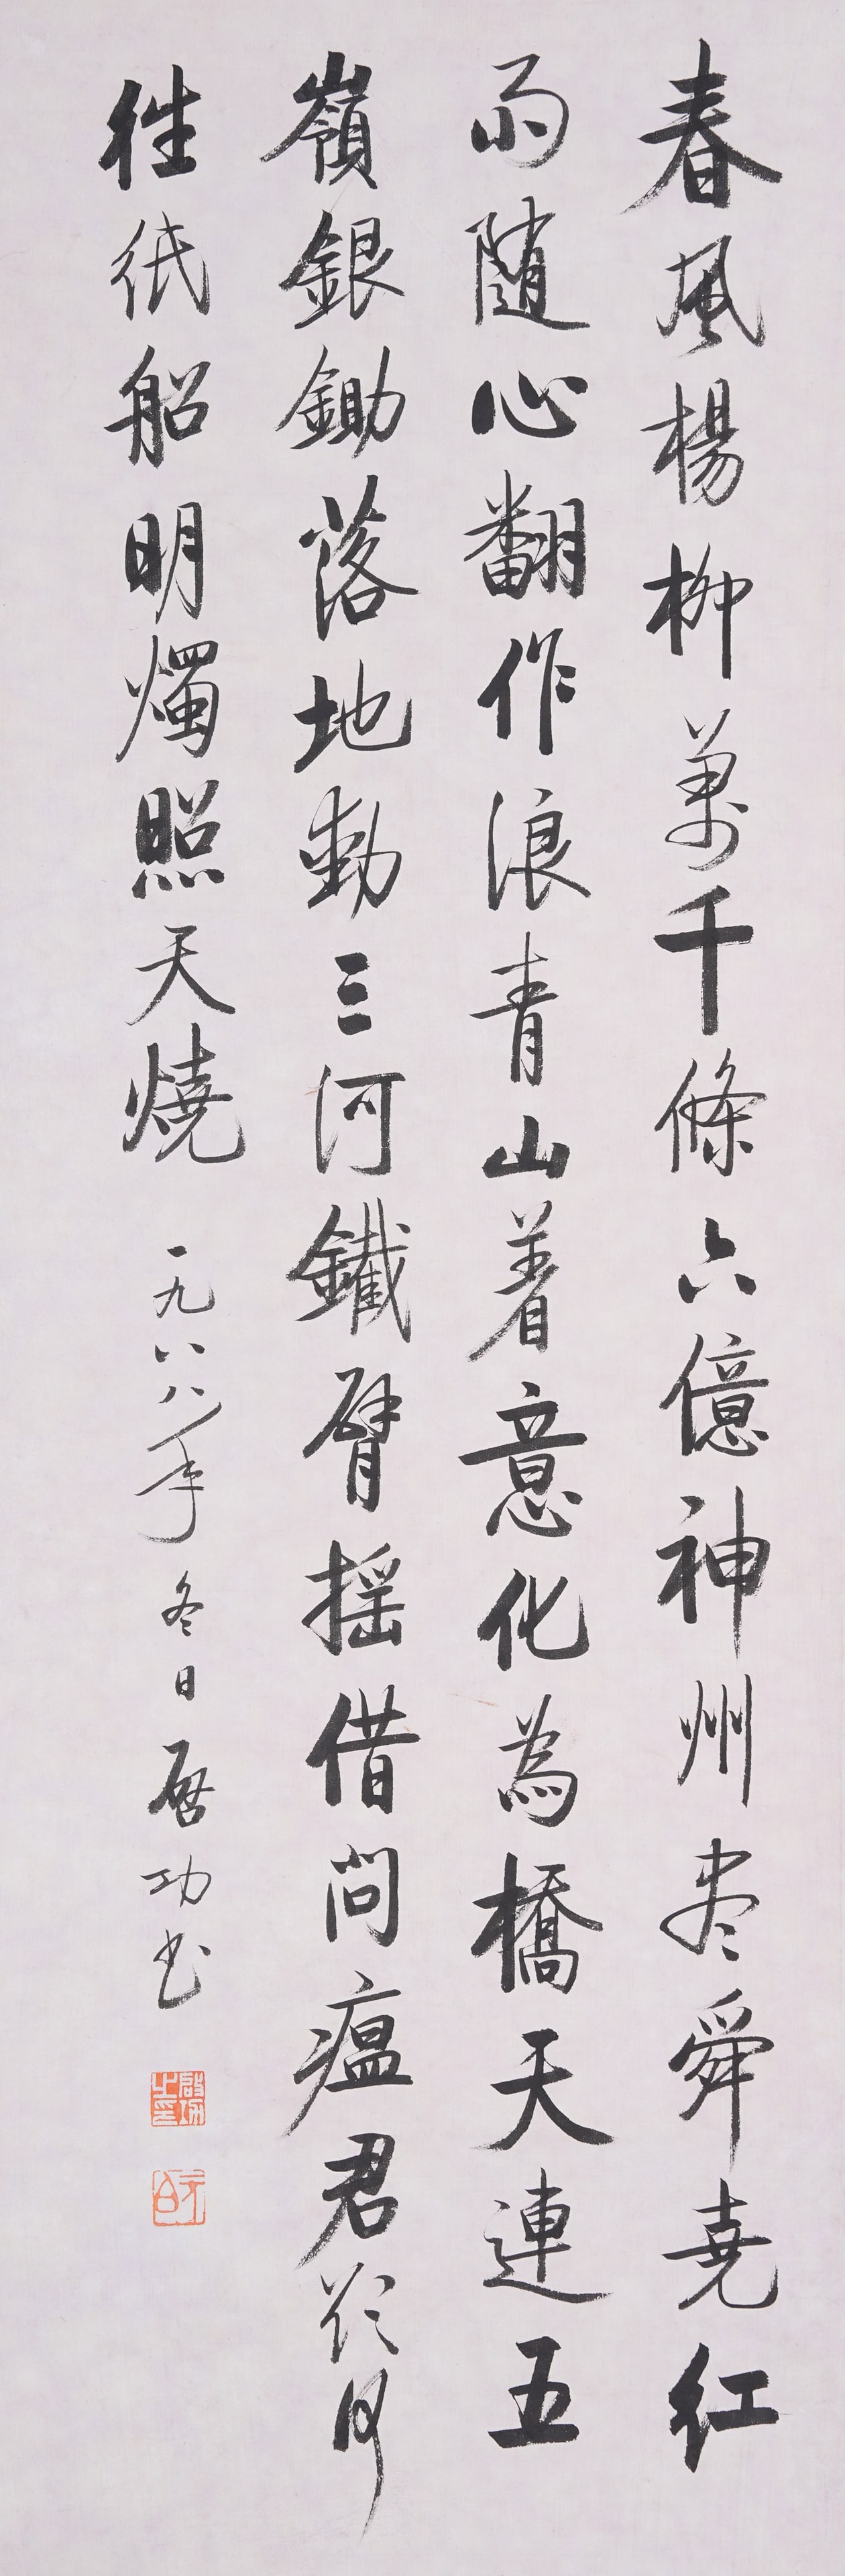 春風楊柳萬千條六億神州尽舜尭紅
雨随心翻作浪青山着意化為橋天連五
嶺銀鋤落地動三河鐵臂摇借問瘟君欲何
往紙船明燭照天燒
一九八八年冬日啓功书
啟功之印
元白